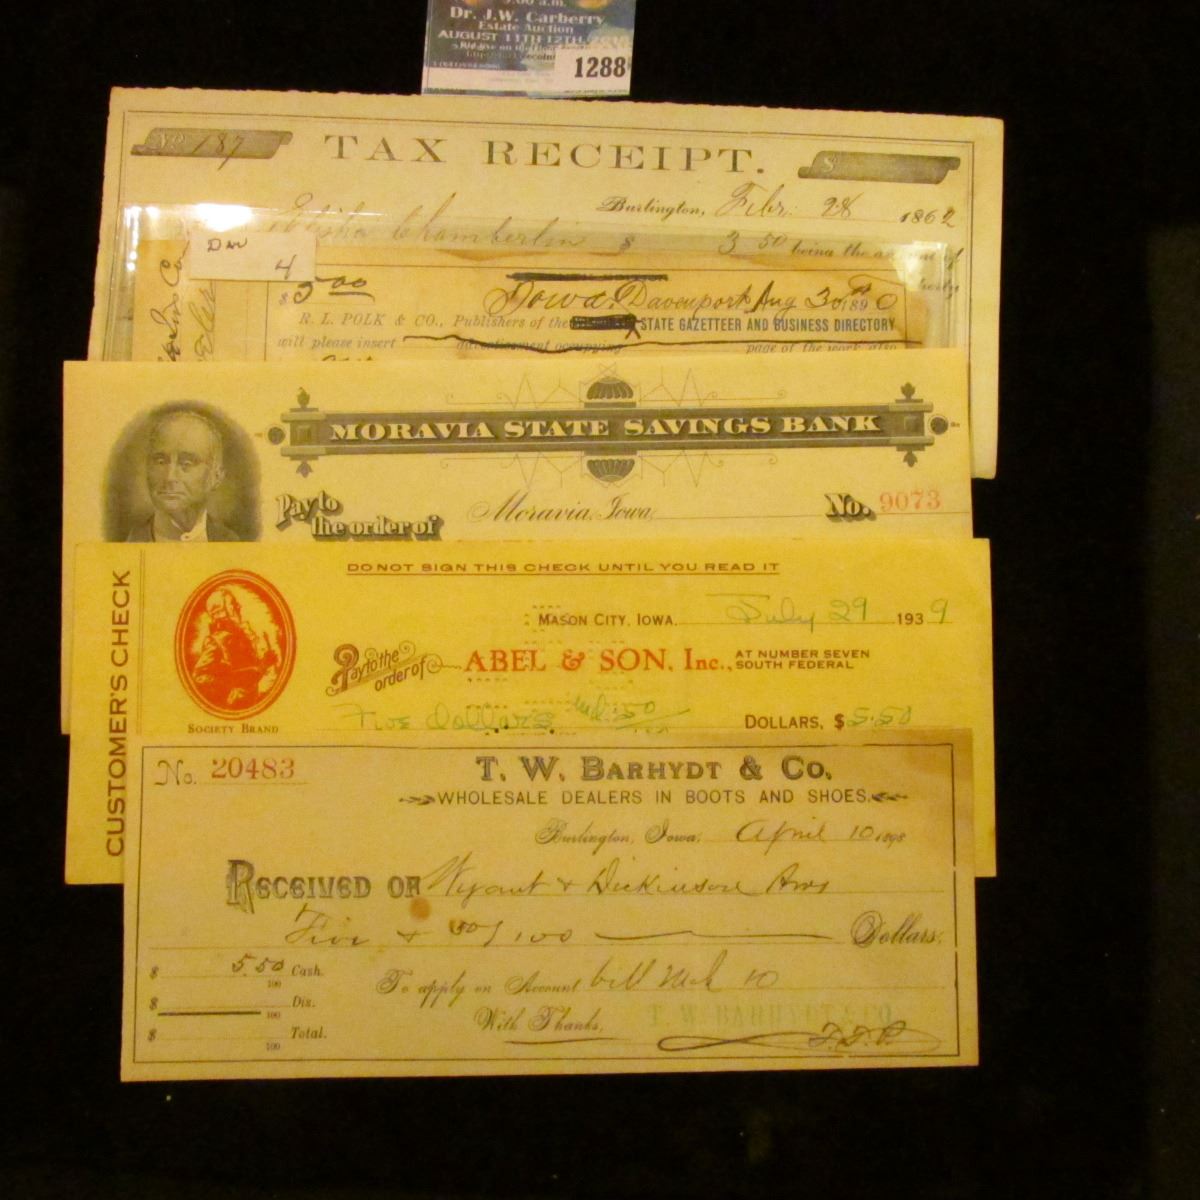 Dr. J.W. Carberry
Estate Auction
AUGUST 11TH 12TH
1288
No 187
TAX RECEIPT.
$
Burlington, Febr. 28 1862
Elisha Chamberlin $ 3 50 being the amount of
Dav
4
$5.00
Iowa. Davenport Aug 30th 1890
R. L. POLK & CO., Publishers of the STATE GAZETTEER AND BUSINESS DIRECTORY
will please insert advertisement occupying page of the work also
MORAVIA STATE SAVINGS BANK
Pay to
the order of
Moravia, Iowa,
No. 9073
CUSTOMER'S CHECK
DO NOT SIGN THIS CHECK UNTIL YOU READ IT
MASON CITY, IOWA. July 29 1939
Pay to the
order of
ABEL & SON, Inc., AT NUMBER SEVEN
SOUTH FEDERAL
Five dollars and 50/100 DOLLARS, $5.50
SOCIETY BRAND
No. 20483
T. W. BARHYDT & CO.
WHOLESALE DEALERS IN BOOTS AND SHOES.
Burlington, Iowa, April 10 1898
RECEIVED OF Wyant & Dickinson Bros
Five & 50/100 Dollars.
$ 5.50 Cash.
100
To apply on Account bill Mch 10
$ Dis.
100
With Thanks,
T. W. BARHYDT & CO
$ Total.
100